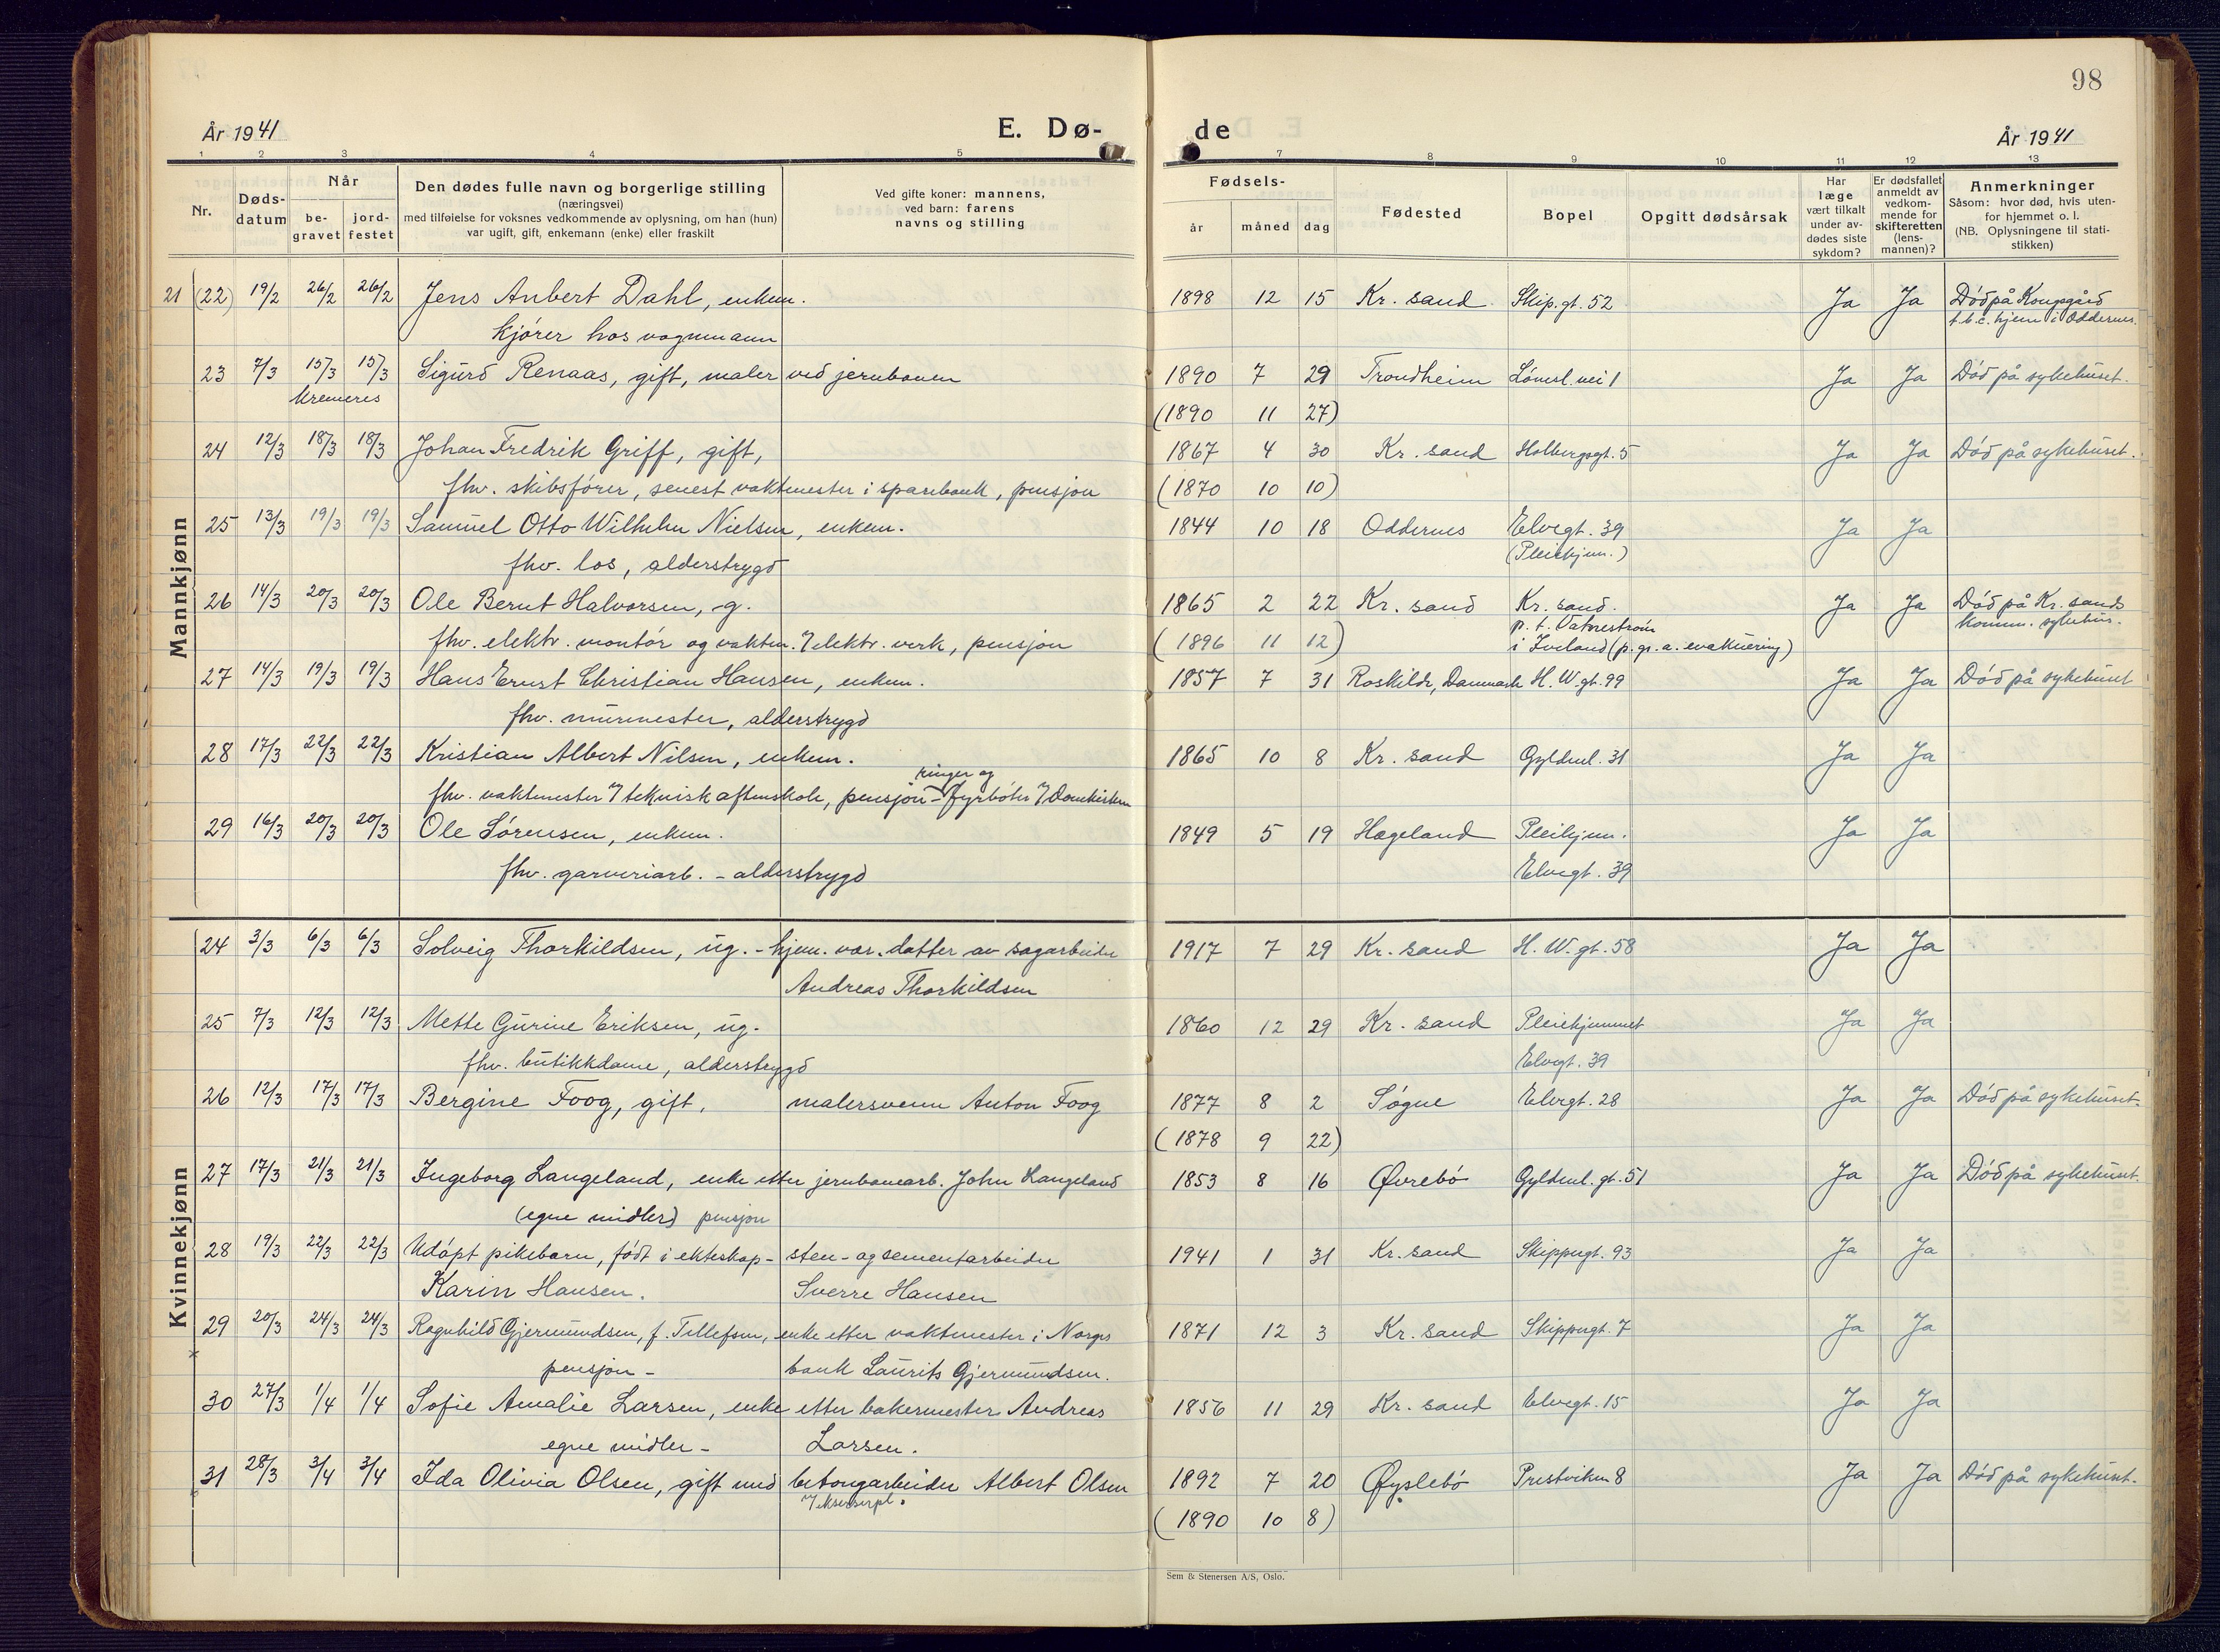 98
År 1941
E. Dø-
de
År 1941
1 2 3 4 5
7 8 9 10 11 12 13
Nr.
Døds-
datum
Når
be-
gravet
jord-
festet
Den dødes fulle navn og borgerlige stilling
(næringsvei)
med tilføielse for voksnes vedkommende av oplysning, om han (hun)
var ugift, gift, enkemann (enke) eller fraskilt
Ved gifte koner: mannens,
ved barn: farens
navns og stilling
Fødsels-
år måned dag
Fødested
Bopel
Opgitt dødsårsak
Har
læge
vært tilkalt
under av-
dødes siste
sykdom?
Er dødsfallet
anmeldt av
vedkom-
mende for
skifteretten
(lens-
mannen)?
Anmerkninger
Såsom: hvor død, hvis uten-
for hjemmet o. l.
(NB. Oplysningene til stati-
stikken)
Mannkjønn
21 (22) 19/2 26/2 26/2 Jens Anbert Dahl, enkem. 1898 12 15 Kr. sand Skip. gt. 52 Ja Ja Død på Kongsgård
kjører hos vognmann t.b.c. hjem i Oddernes.
23 7/3 15/3 15/3 Sigurd Renaas, gift, maler ved jernbanen 1890 7 29 Trondheim Lømsl. vei 1 Ja Ja Død på sykehuset.
kremeres (1890 11 27)
24 12/3 18/3 18/3 Johan Fredrik Griff, gift, 1867 4 30 Kr. sand Holbergsgt. 5 Ja Ja Død på sykehuset.
fhv. skibsfører, senest vaktmester i sparebank, pensjon (1870 10 10)
25 13/3 19/3 19/3 Samuel Otto Wilhelm Nielsen, enkem. 1844 10 18 Oddernes Elvegt. 39 Ja Ja
fhv. los, alderstrygd (Pleiehjem.)
26 14/3 20/3 20/3 Ole Bernt Halvorsen, g. 1865 2 22 Kr. sand Kr. sand. Ja Ja Død på Kr. sands
p. t. Vatnestrøm komm. sykehus.
fhv. elektr. montør og vaktm. v/ elektr. verk, pensjon (1896 11 12) i Iveland (p. gr. a. evakuering)
27 14/3 19/3 19/3 Hans Ernst Christian Hansen, enkem. 1857 7 31 Roskilde, Danmark H. W. gt. 99 Ja Ja Død på sykehuset
fhv. murmester, alderstrygd
28 17/3 22/3 22/3 Kristian Albert Nilsen, enkem. 1865 10 8 Kr. sand Gyldenl. 31 Ja Ja
ringer og
fhv. vaktmester v/ teknisk aftenskole, pensjon - fyrbøter v/ Domkirken
29 16/3 20/3 20/3 Ole Sørensen, enkem. 1849 5 19 Hægeland Pleihjem. Ja Ja
fhv. garveriarb. - alderstrygd Elvegt. 39
Kvinnekjønn
24 3/3 6/3 6/3 Solveig Thorkildsen, ug. - hjem. vær. datter av sagarbeider 1917 7 29 Kr. sand H. W. gt. 58 Ja Ja
Andreas Thorkildsen
25 7/3 12/3 12/3 Mette Gurine Eriksen, ug. 1860 12 29 Kr. sand Pleiehjemmet Ja Ja
fhv. butikkdame, alderstrygd Elvegt. 39
26 12/3 17/3 17/3 Bergine Foog, gift, malersvenn Anton Foog 1877 8 2 Søgne Elvegt. 28 Ja Ja Død på sykehuset.
(1878 9 22)
27 17/3 21/3 21/3 Ingeborg Langeland, enke etter jernbanearb. John Langeland 1853 8 16 Øvrebø Gyldenl. gt. 51 Ja Ja Død på sykehuset.
(egne midler) pensjon
28 19/3 22/3 22/3 Udøpt pikebarn, født i ekteskap - sten- og sementarbeider 1941 1 31 Kr. sand Skippergt. 93 Ja Ja
Karin Hansen. Sverre Hansen
29 20/3 24/3 24/3 Ragnhild Gjermundsen, f. Tellefsen, enke etter vaktmester i Norges 1871 12 3 Kr. sand Skippergt. 7 Ja Ja
x pensjon - bank Laurits Gjermundsen.
30 27/3 1/4 1/4 Sofie Amalie Larsen, enke etter bakermester Andreas 1856 11 29 Kr. sand Elvegt. 15 Ja Ja
egne midler - Larsen.
31 28/3 3/4 3/4 Ida Olivia Olsen, gift med betongarbeider Albert Olsen 1892 7 20 Øyslebø Prestviken 8 Ja Ja Død på sykehuset.
(1890 10 8)
Sem & Stenersen A/S, Oslo.